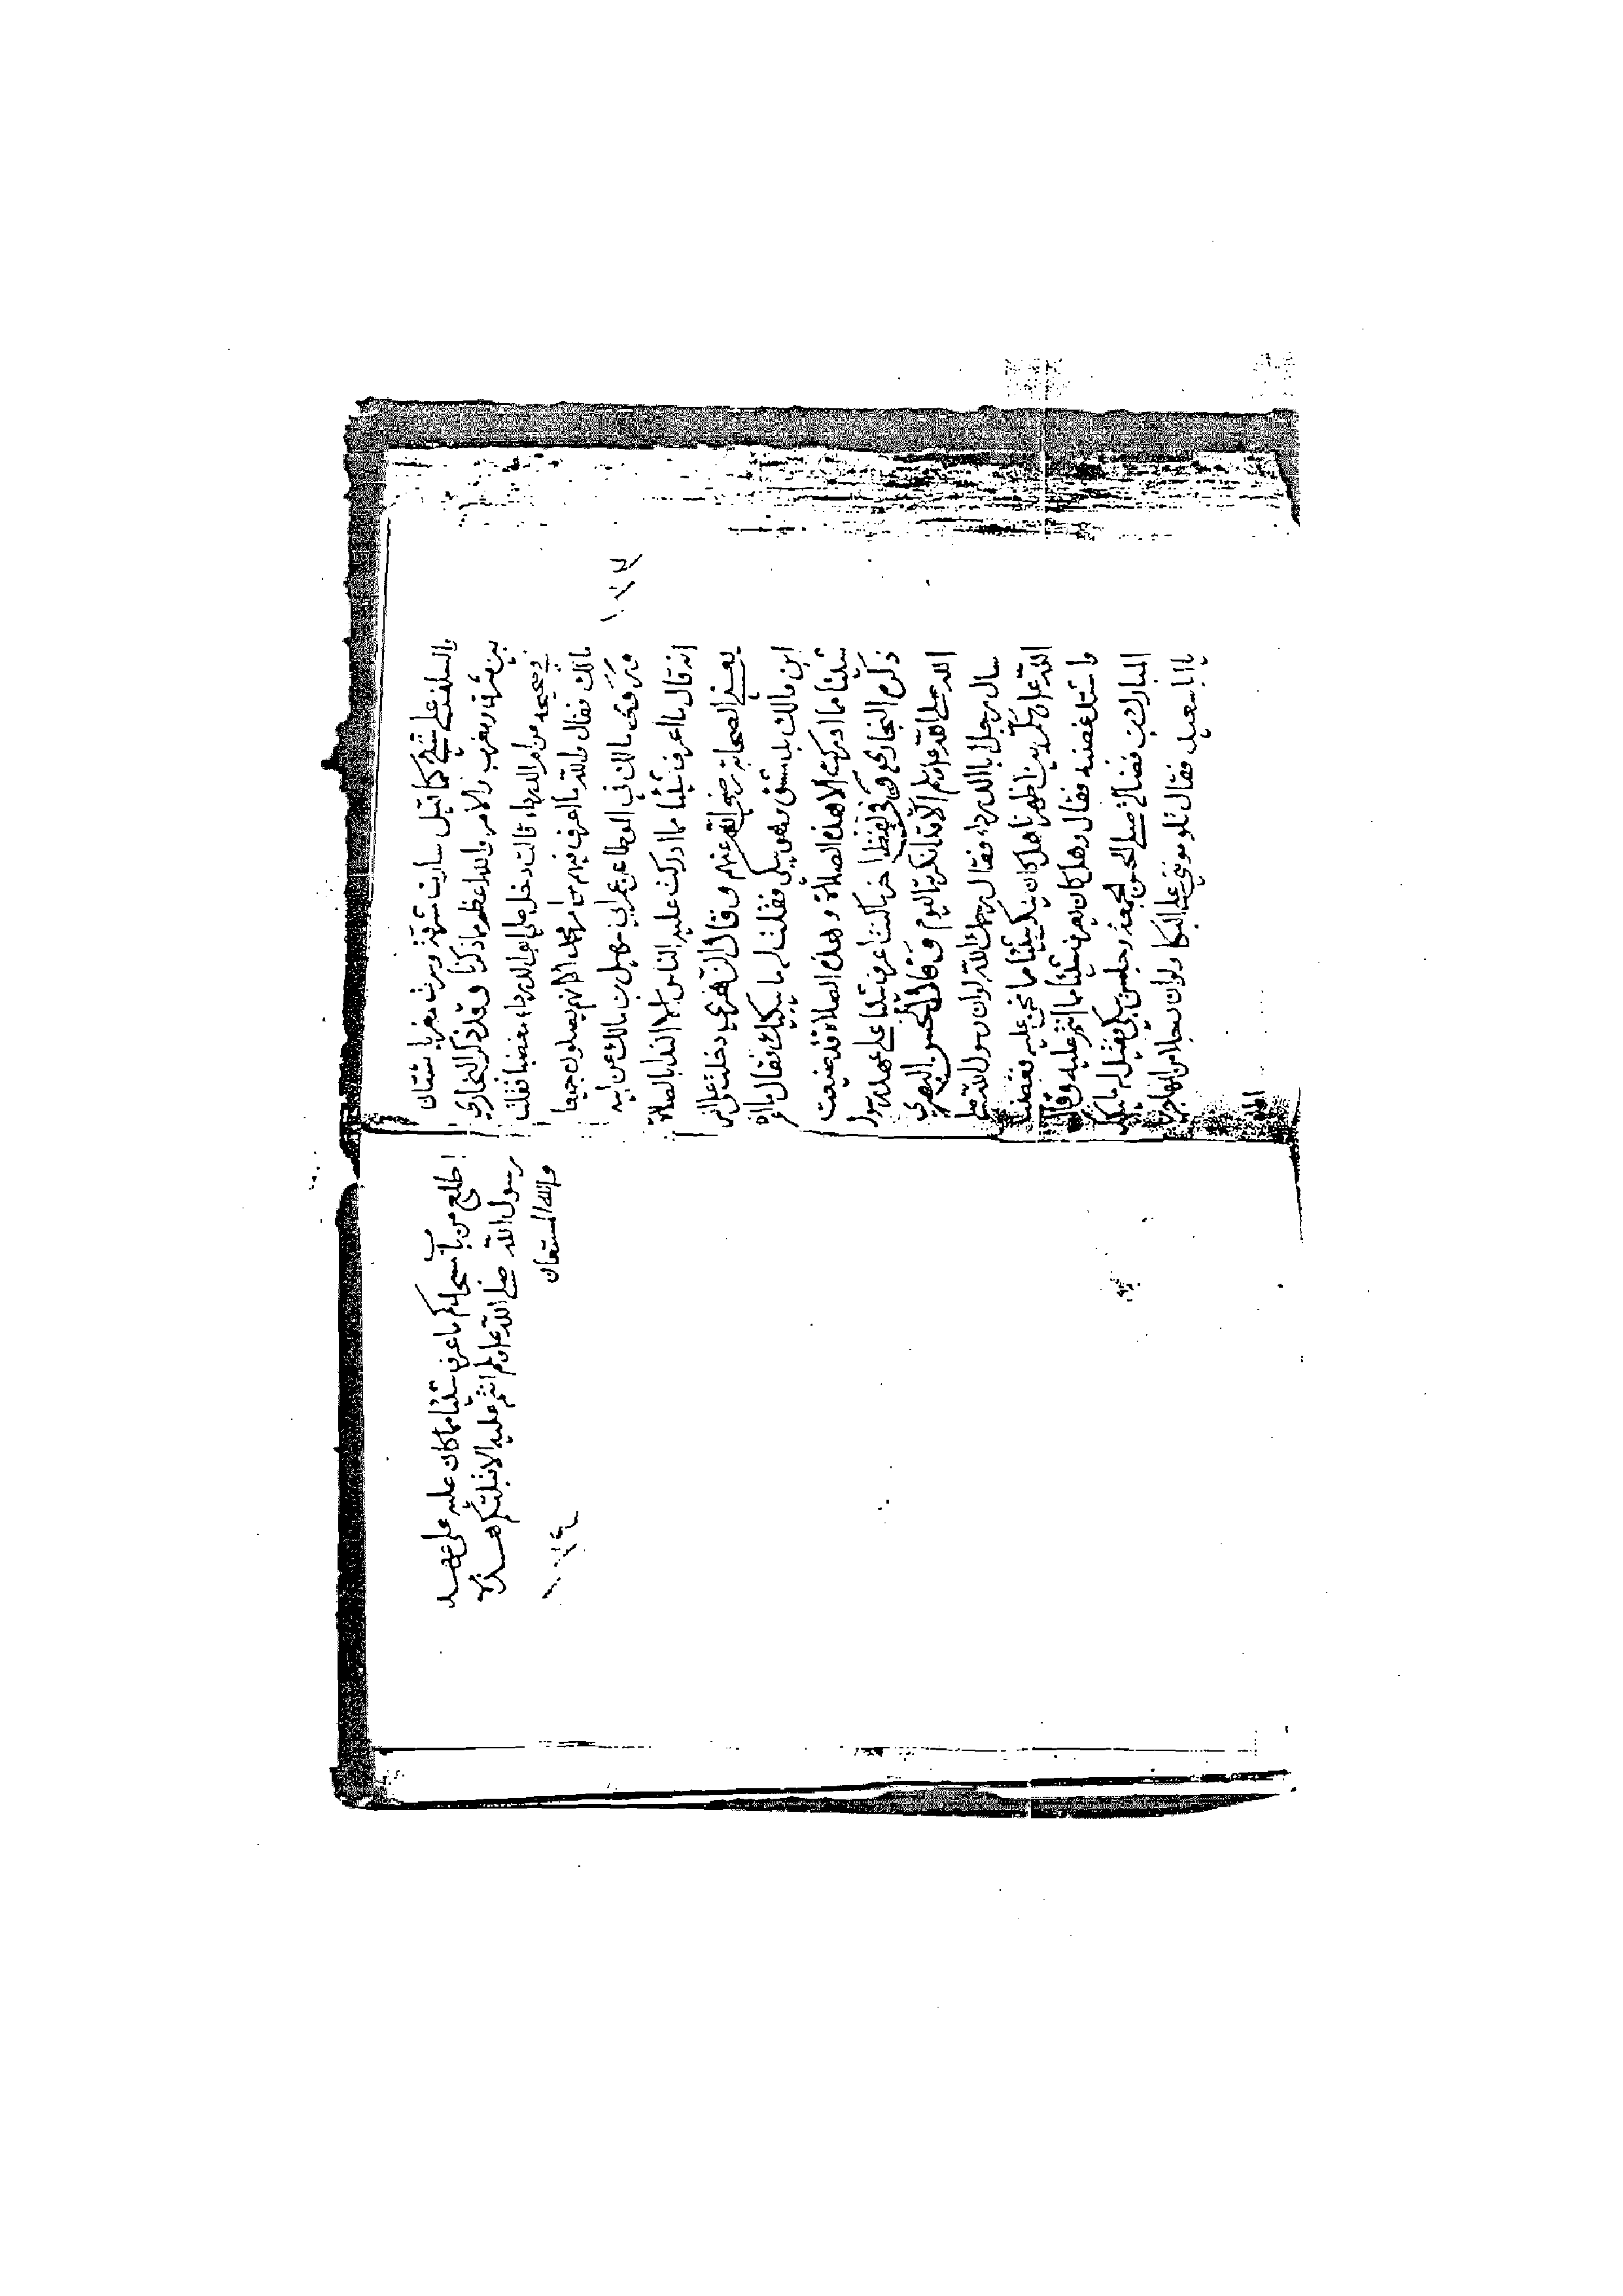 والسلف علي شيء كما قيل سارت مشرقة وسرت مغربا شتان
بين مشرق ومغرب والامر والله اعظم ما ذكرنا وقد ذكر البخاري
في صحيحه عن ام الدرداء قالت دخل علي ابو الدرداء مغضبا فقلت
مالك فقال والله ما اعرف فيهم من امر محمد الا انهم يصلون جميعا
وروى مالك في الموطا عن عمه ابي سهيل بن مالك عن ابيه
انه قال ما اعرف شيئا مما ادركت عليه الناس الا الندا بالصلاة
يعني الصحابة رضي الله عنهم وقال الزهري دخلت على انس
ابن مالك بدمشق وهو يبكي فقلت له ما يبكيك فقال ما اعرف
شيئا مما ادركت الا هذه الصلاة وهذه الصلاة قد ضيعت
ذكره البخاري وفي لفظ اخر ما كنت اعرف شيئا على عهد رسول
الله صلى الله عليه وسلم الا قد انكرته اليوم وقال الحسن البصري
سال رجل ابا الدرداء فقال رحمك الله لو ان رسول الله صلى
الله عليه وسلم بين اظهرنا هل كان ينكر شيئا مما نحن عليه فغضب
واشتد غضبه فقال وهل كان يعرف شيئا مما انتم عليه وقال
المبارك بن فضالة صلى الحسن الجمعة وجلس يبكي فقيل له ما يبكيك
يا ابا سعيد فقال تلوموني على البكا ولو ان رجلا من المهاجرين
١٢٧
اطلع من باب مسجدكم ما عرف شيئا مما كان عليه على عهد
رسول الله صلى الله عليه وسلم انتم عليه الا قبلتكم هذه
والله المستعان